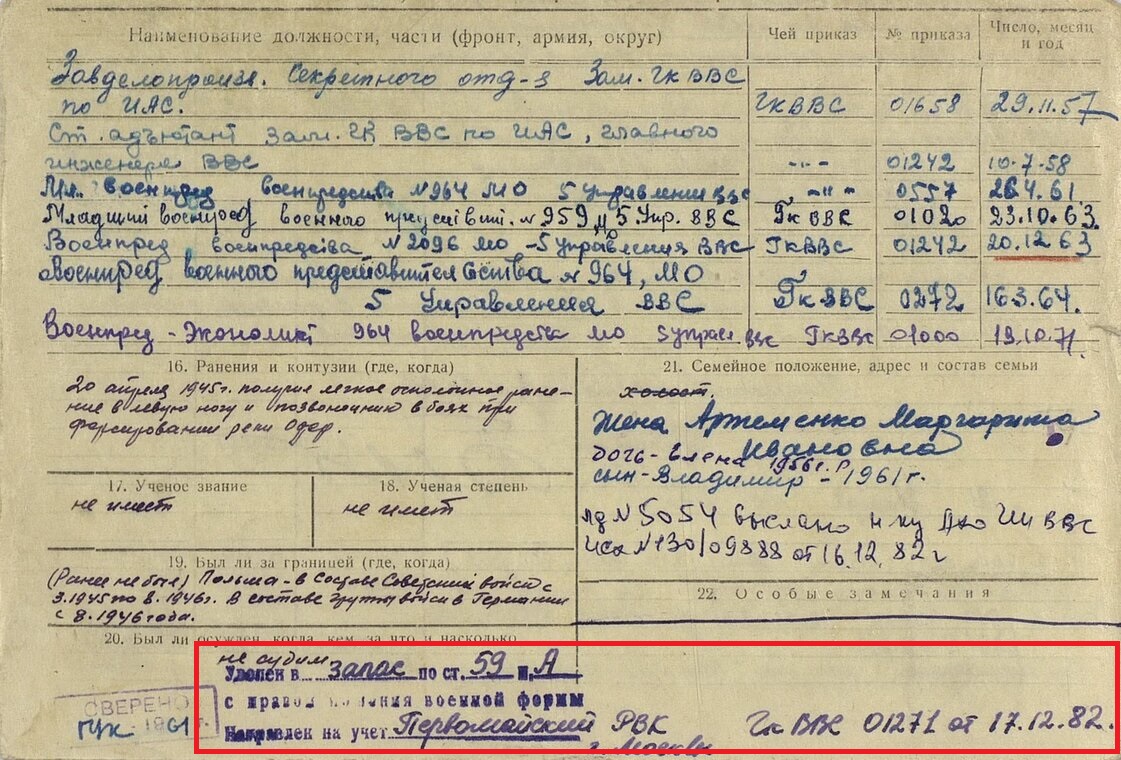 Наименование должности, части (фронт, армия, округ)
Чей приказ
№ приказа
Число, месяц и год
Завделопроизв. Секретного отд-я Зам. Гк ВВС
по ИАС. ГК ВВС 01658 29.11.57
Ст. адъютант Зам. ГК ВВС по ИАС, главного
инженера ВВС -"- 01242 10.7.58
Мл. военпред военпредства №964 МО 5 Управления ВВС -"- 0557 26.4.61
Младший военпред военного №959 5 Упр. ВВС Гк ВВС 01020 23.10.63.
Военпред военпредства №2096 МО - 5 управления ВВС ГК ВВС 01242 20.12.63
Военпред военного № 964, МО
5 Управления ВВС Гк ВВС 0272 16.3.64.
Военпред - Экономист 964 военпредства МО ВВС ГК ВВС 01000 19.10.71.
16. Ранения и контузии (где, когда)
20 апреля 1945г. получил легкое осколочное ране-
ние в левую ногу и позвоночник в боях при
форсировании реки Одер.
17. Ученое звание
не имеет
18. Ученая степень
не имеет
19. Был ли за границей (где, когда)
(Ранее не был) Польша - в составе Советских войск с
3.1945 по 8.1946г. В составе группы войск в Германии
с 8.1946 года.
20. Был ли осужден, когда, кем, за что и насколько
не судим
21. Семейное положение, адрес и состав семьи
холост.
Жена Артеменко Маргарита
Ивановна
дочь - Елена 1956 г. р
сын - Владимир - 1961 г.
лд №5054 выслано ВВС
исх №130/09888 от 16.12.82 г
22. Особые замечания
Уволен в запас по ст. 59 п. А
с правом ношения военной формы
Направлен на учет Первомайский РВК
г. Москвы
Гк ВВС 01271 от 17.12.82.
СВЕРЕНО
ГУК 1961 г.